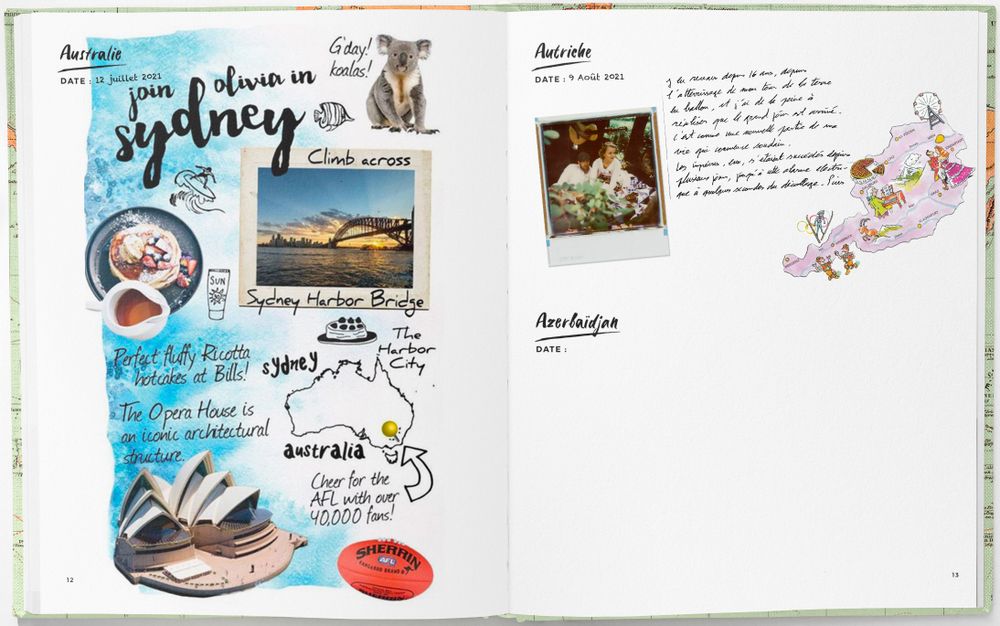 Australie
DATE : 12 juillet 2021
join olivia in
sydney
G'day!
koalas!
Climb across
Sydney Harbor Bridge
SUN
Perfect fluffy Ricotta
hotcakes at Bills!
The
Harbor
City
sydney
The Opera House is
an iconic architectural
structure.
australia
Cheer for the
AFL with over
40,000 fans!
SHERRIN
AFL
KANGAROO BRAND
12
Autriche
DATE : 9 Août 2021
depuis 16 ans, depuis
l'atterrissage de mon tour de la terre
en ballon, et j'ai de la peine à
réaliser que le grand jour est arrivé.
C'est comme une nouvelle partie de ma
vie qui commence soudain.
Les s'étaient succédés depuis
plusieurs jours, jusqu'à
à quelques secondes du décollage. Puis
Azerbaïdjan
DATE :
13